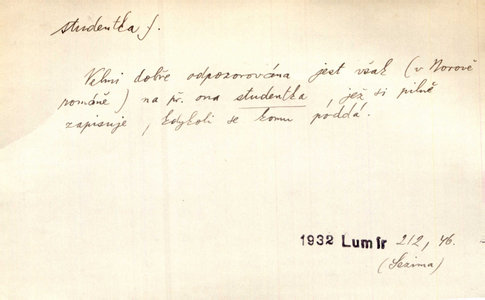 studentka f.
Velmi dobře odpozorována jest však (v Norově
románě) na př. ona studentka, jež si pilně
zapisuje, kdykoli se komu poddá.
1932 Lumír 212, 46.
(Sezima)